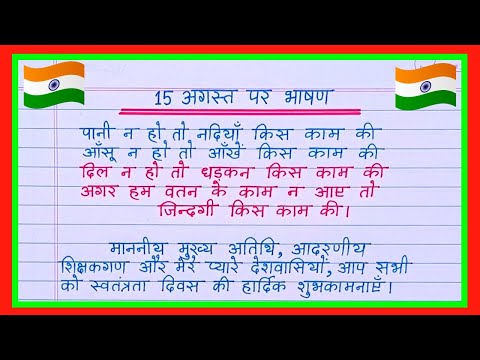 15 अगस्त पर भाषण
पानी न हो तो नदियाँ किस काम की
आँसू न हो तो आँखें किस काम की
दिल न हो तो धड़कन किस काम की
अगर हम वतन के काम न आए तो
जिन्दगी किस काम की।
माननीय मुख्य अतिथि, आदरणीय
शिक्षकगण और मेरे प्यारे देशवासियों, आप सभी
को स्वतंत्रता दिवस की हार्दिक शुभकामनाएँ।